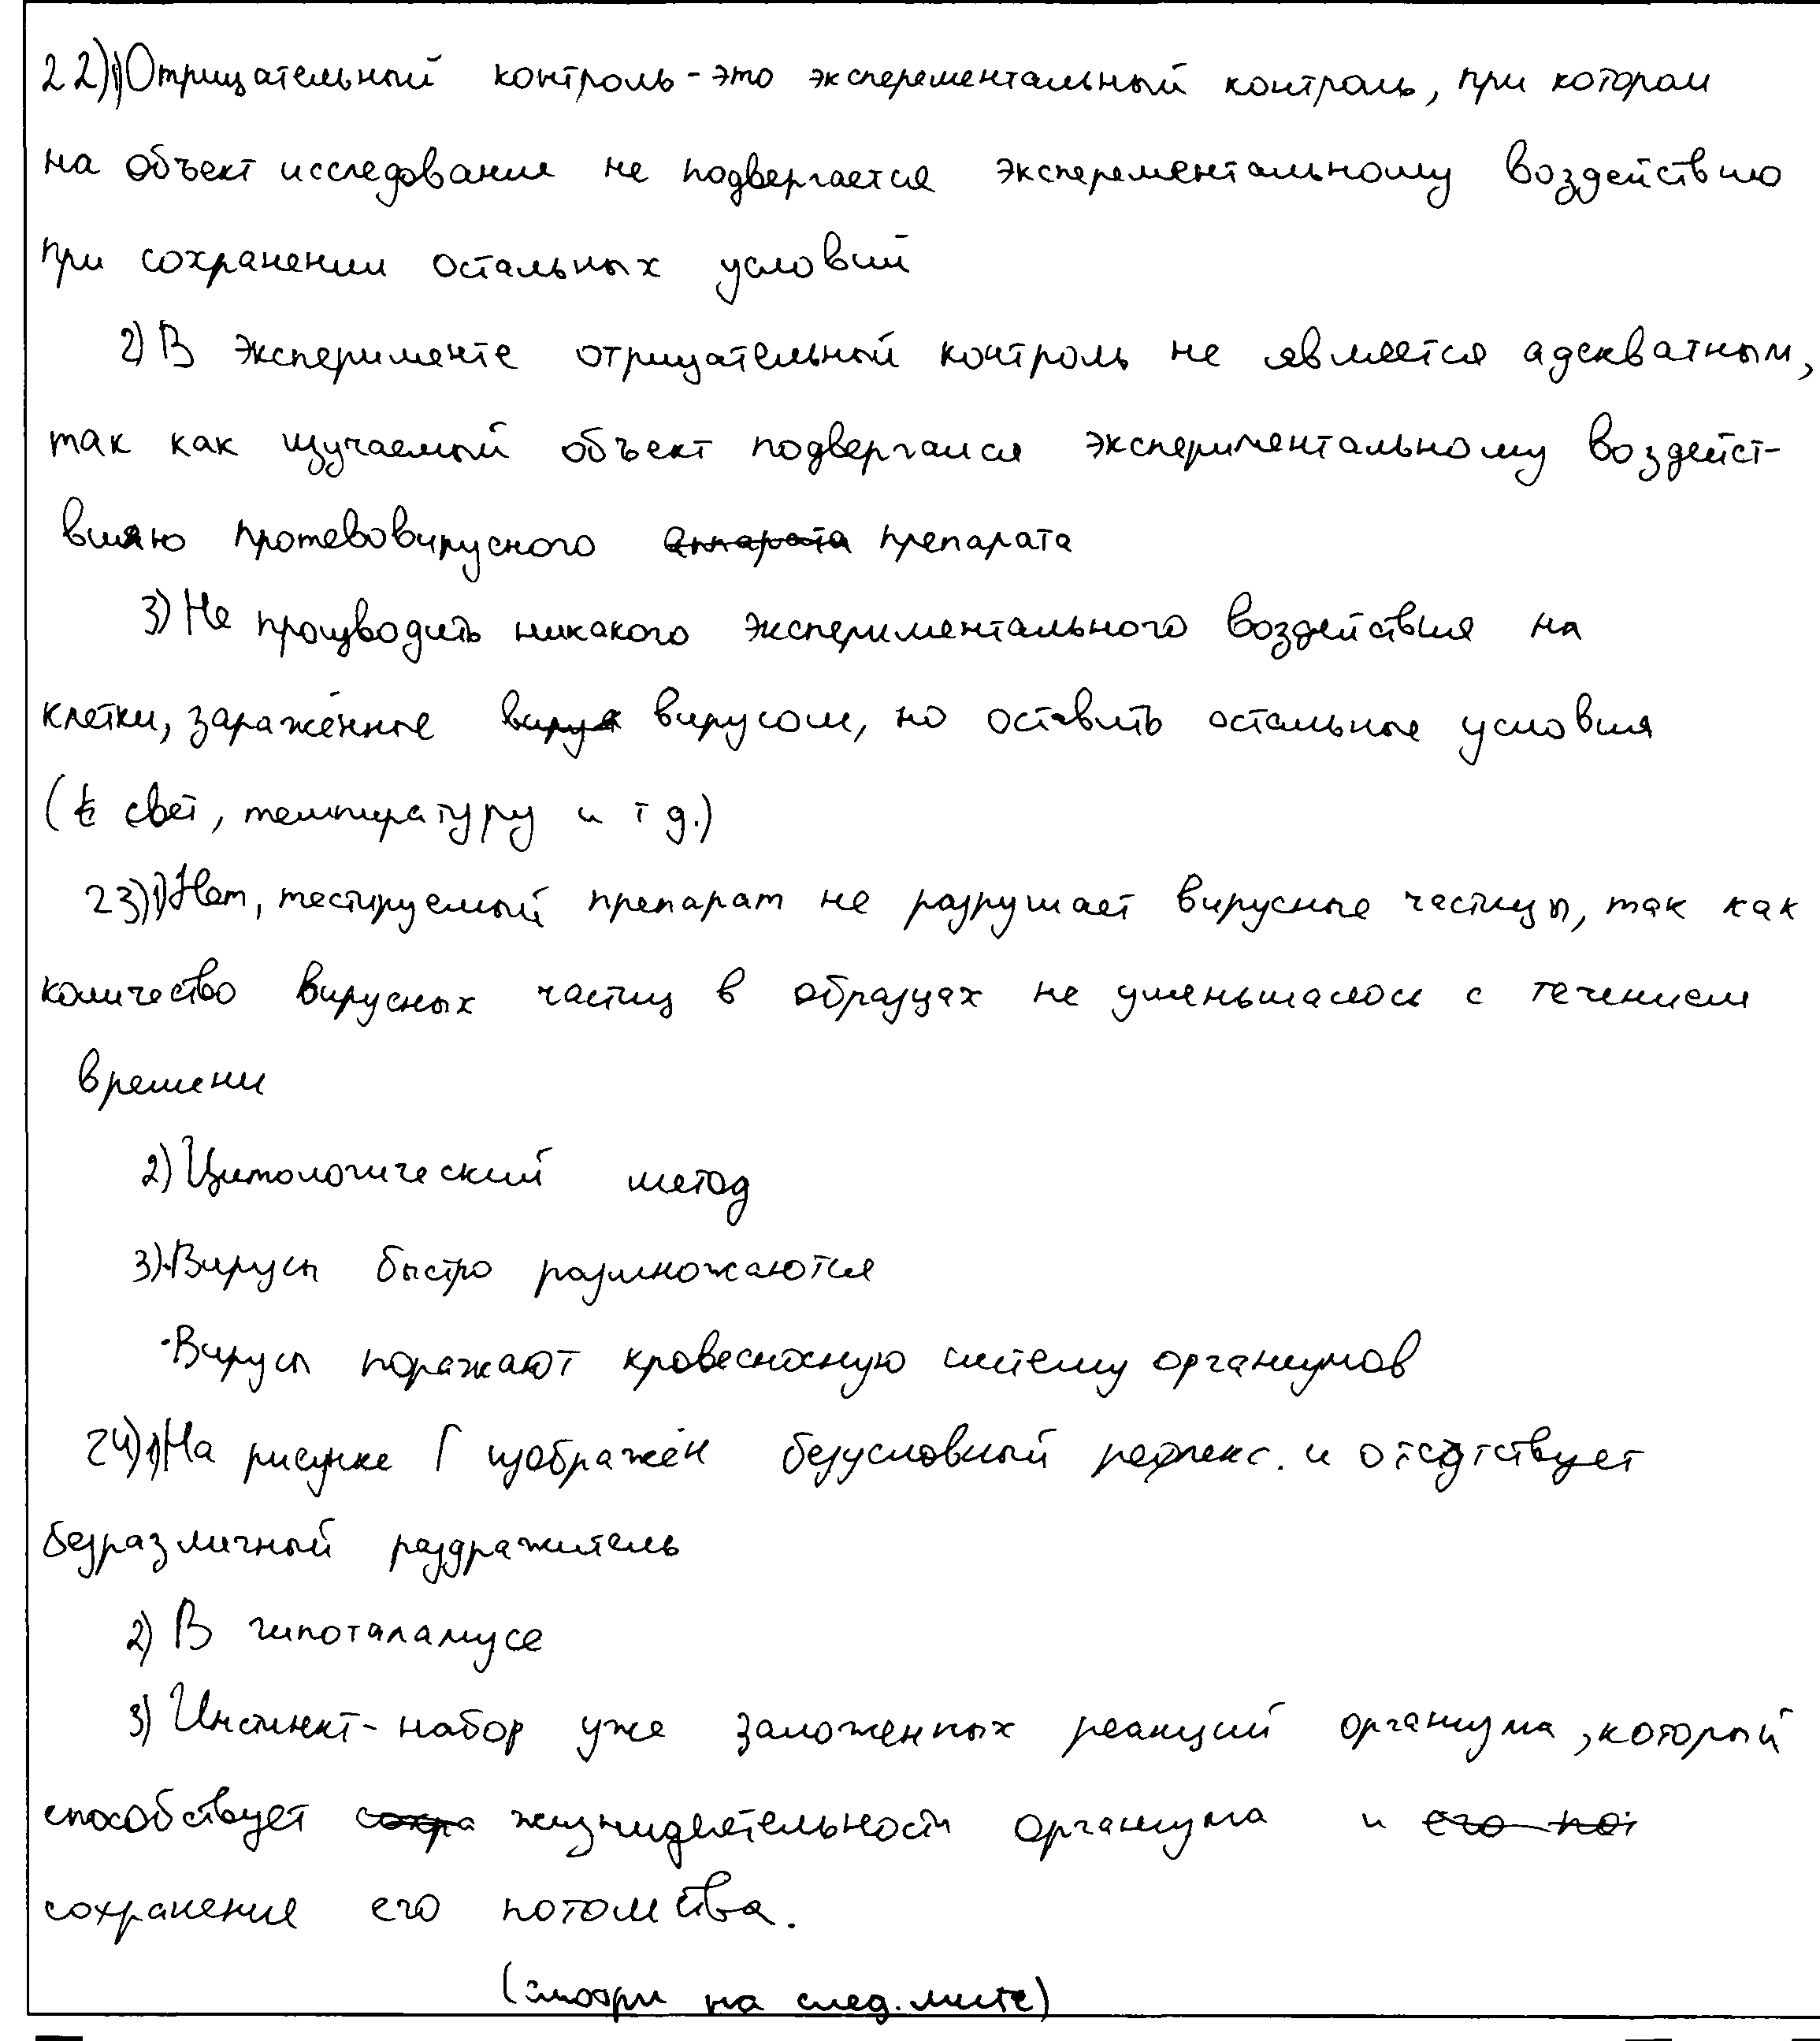 22)1)Отрицательный контроль - это эксперементальный контроль, при котором
на объект исследования не подвергается эксперементальному воздействию
при сохранении остальных условий
2) В эксперименте отрицательный контроль не является адекватным,
так как изучаемый объект подвергался экспериментальному воздейст-
вияю протевовирусного аппарата препарата
3) Не производить никакого экспериментального воздействия на
клетки, заражённые вируса вирусом, но оставить остальные условия
(свет, температуру и т д.)
23)1)Нет, тестируемый препарат не разрушает вирусные частицы, так как
количество вирусных частиц в образцах не уменьшалось с течением
времени
2) Цитологический метод
3)·Вирусы быстро размножаются
·Вирусы поражают кровесносную систему организмов
24)1)На рисунке Г изображён безусловный рефлекс. и отсутствует
безразличный раздражитель
2) В гипоталамусе
3) Инстинкт - набор уже заложенных реакций организма, который
способствует сохра жизнидеятельности организма и его по
сохранение его потомства.
(смотри на след. листе)